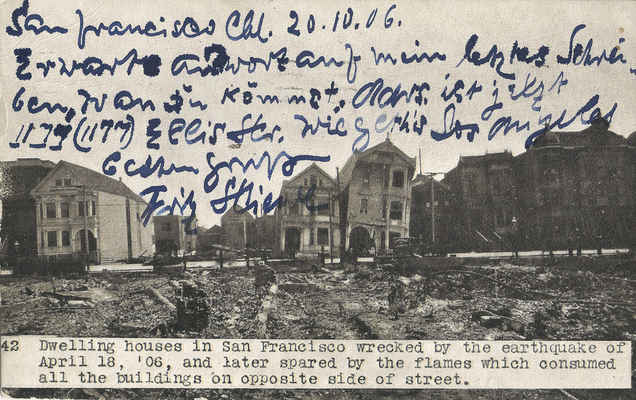 San Francisco Cal. 20.10.06.
Erwarte Antwort auf mein letztes Schrei-
ben, wan du kömmst, Adrs. ist jetzt
1177 (1177) Ellis Str. Wie geht's Los Angeles
Besten Gruss
Fritz
42 Dwelling houses in San Francisco wrecked by the earthquake of
April 18, '06, and later spared by the flames which consumed
all the buildings on opposite side of street.